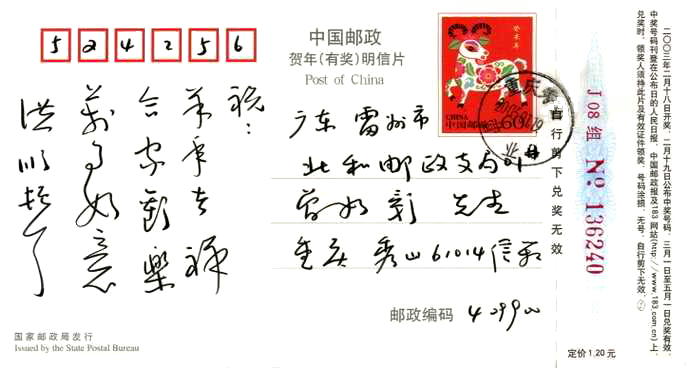 524256
中国邮政
贺年(有奖)明信片
Post of China
癸未年
CHINA
中国邮政 60分
重庆秀山
祝:
羊年吉祥
合家欢乐
万事如意
洪顺接了
广东 雷州市
北和邮政支局
先生
重庆 秀山 61014信箱
邮政编码 409900
国家邮政局发行
Issued by the State Postal Bureau
自行剪下兑奖无效
J08组 No 136240
定价1.20元
二○○三年二月十八日开奖,二月十九日公布中奖号码,三月一日至五月一日兑奖有效,
中奖号码刊登在公布日的人民日报、中国邮政报及183网站(http://www.183.com.cn)上,
兑奖时,领奖人须持此片及有效证件领奖,号码涂损、无号、自行剪下无效。